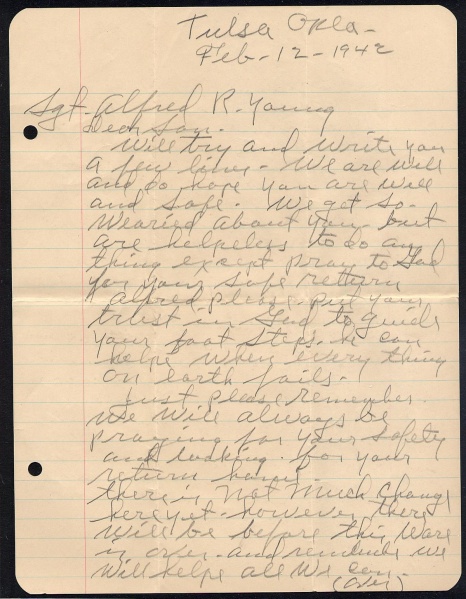 Tulsa Okla-
Feb-12-1942
Sgt. Alfred R. Young
Dear Son.
Will try and write you
a few lines - We are well
and do hope you are well
and safe. We get so-
wearied about you - but
are helpless to do any
thing except pray to God
for your safe return
Alfred please put your
trust in God to guide
your foot steps. he can
helpe when every thing
on earth fails.
Just please remember
we will always be
praying for your safety
and looking for your
return home
there is not much change
here yet - however there
will be before this ware
is over. and remember we
will helpe all we can -
(over)